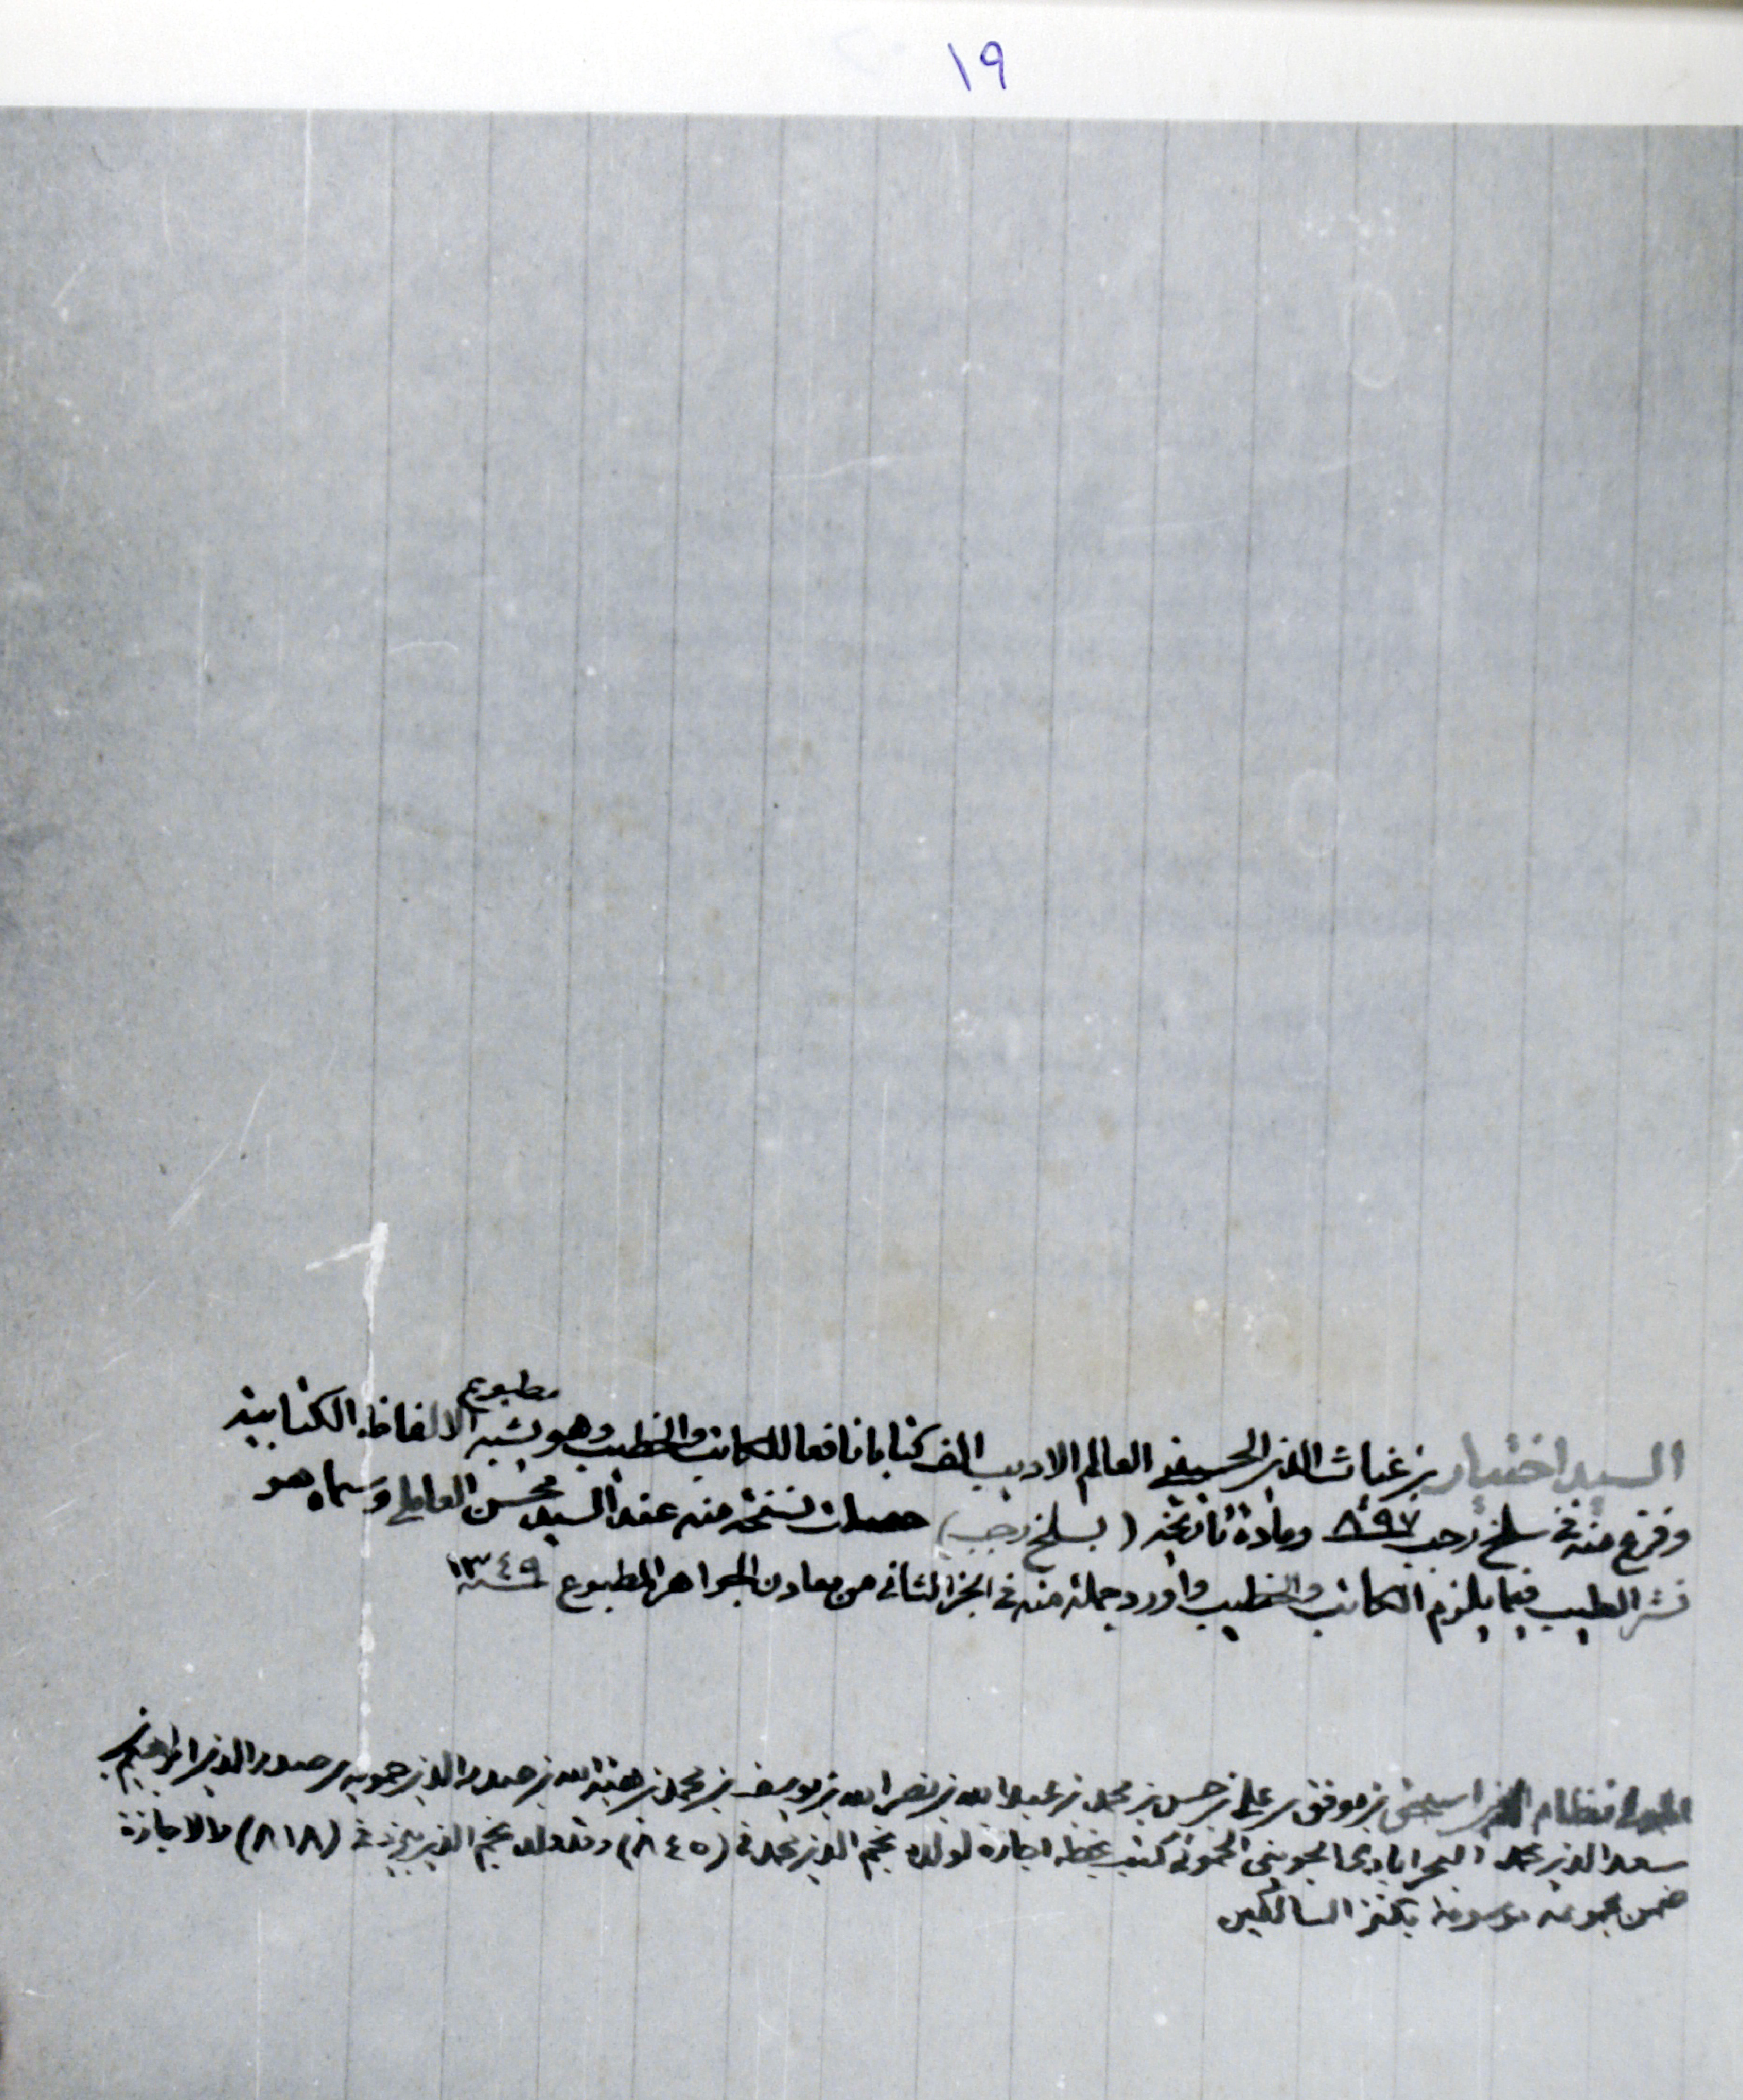 ١٩
مطبوع
السيد اختيار بن غياث الدين الحسيني العالم الاديب الف كتابا نافعا للكاتب والخطيب وهو يشبه الالفاظ الكتابية
وفرغ منه في سلخ رجب ٨٩٧ ومادة تاريخه (بسلخ رجب) حصلت نسخة منه عند السيد محسن العاملي وسماه هو
نشر الطيب فيما يلزم الكاتب والخطيب واورد جملة منه في الجزء الثاني من معادن الجواهر المطبوع سنة ١٣٤٩
المولى نظام الدين اسحق بن موفق بن علي بن حسن بن محمد بن عبد الله بن نصر الله بن يوسف بن محمد بن هبة الله بن صدر الدين حمويه بن صدر الدين ابراهيم بن
سعد الدين محمد البحرابادي الجويني الحموئي كتب بخطه اجازة لولده نجم الدين محمد في (٨٤٥) وتولد نجم الدين في (٨١٨) والاجازة
ضمن مجموعة موسومة بكنز السالكين